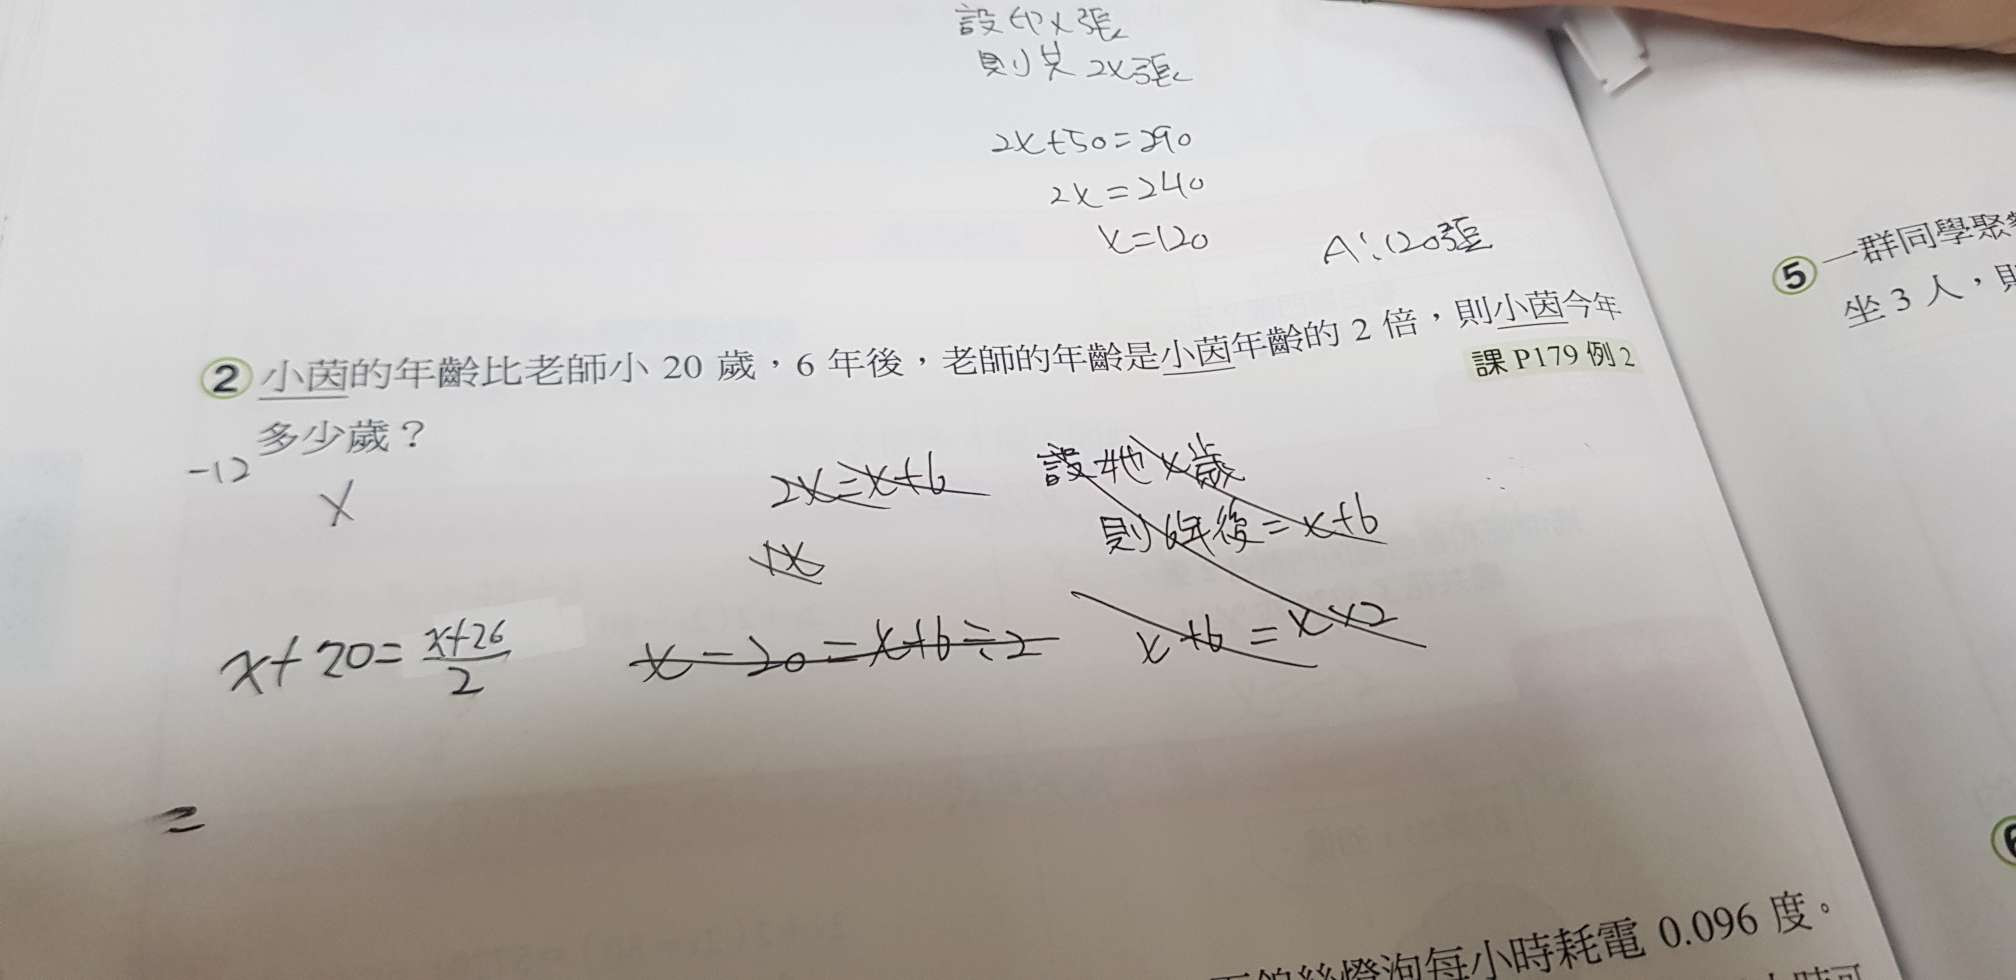 設印x張
則共 2x張
2x+50=290
2x=240
x=120
A:120張
② 小茵的年齡比老師小 20 歲，6 年後，老師的年齡是小茵年齡的 2 倍，則小茵今年
多少歲？
課 P179 例 2
-12
x
2x=x+6
1x
設她x歲
則6年後=x+6
x+6=x×2
x+20=\frac{x+26}{2}
x-20=x+6÷2
=
⑤ 一群同學聚
坐 3 人，則
絲燈泡每小時耗電 0.096 度。